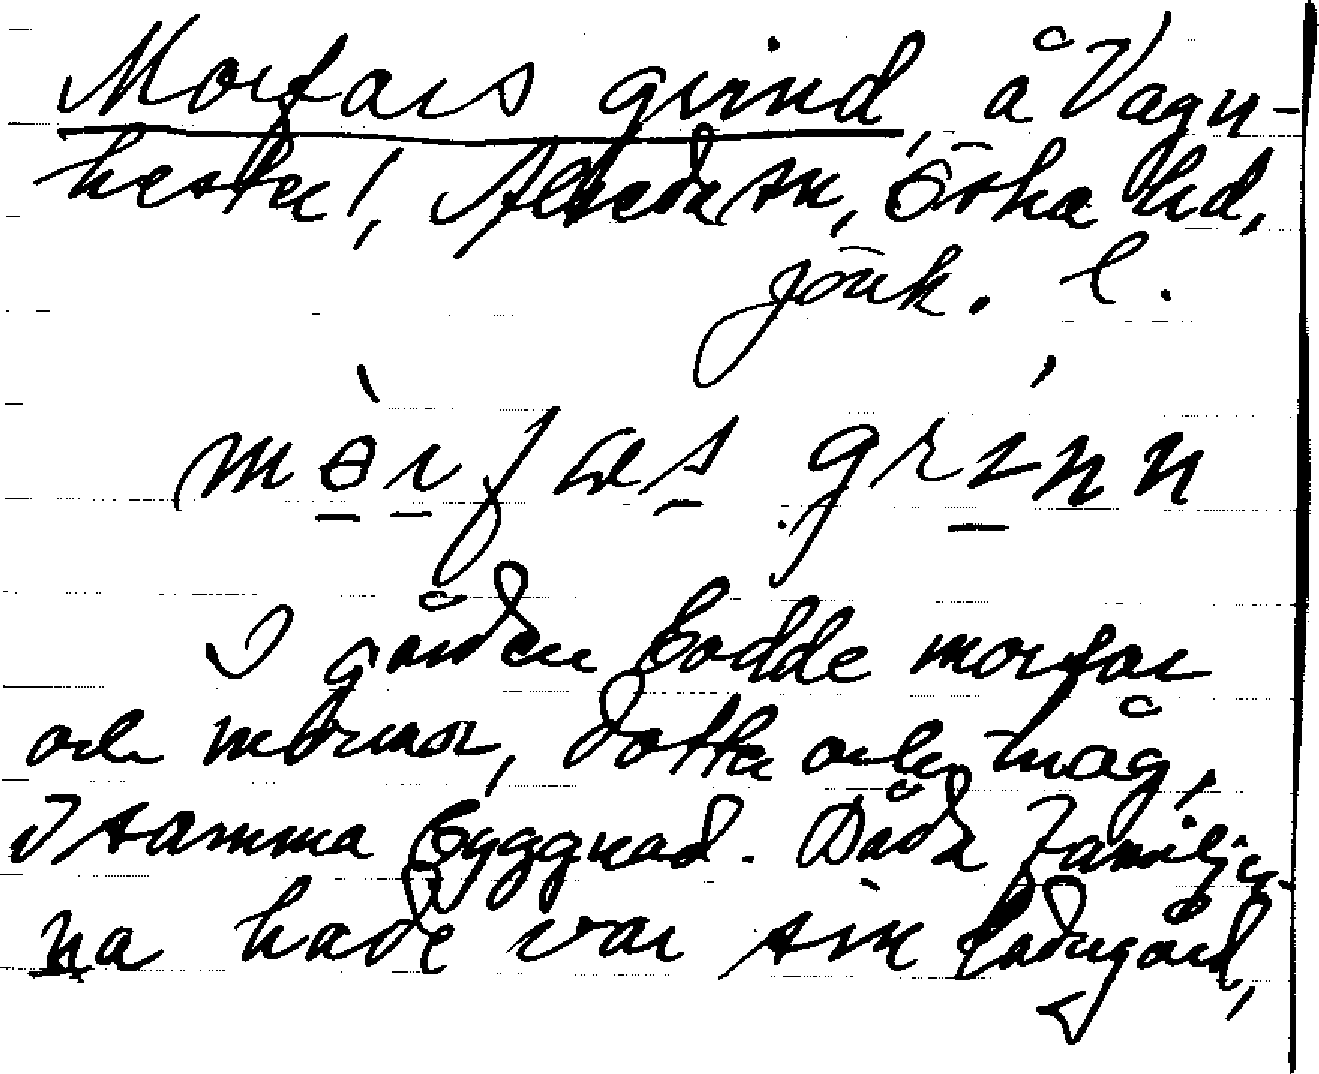 Morfars grind, å Vagn-
hester, Almesåkra sn, Östra hd,
Jönk. l.
mòrfas grínn
I gården bodde morfar
och mormor, dotter och måg,
I samma byggnad. Båda familjer-
na hade var sin ladugård,